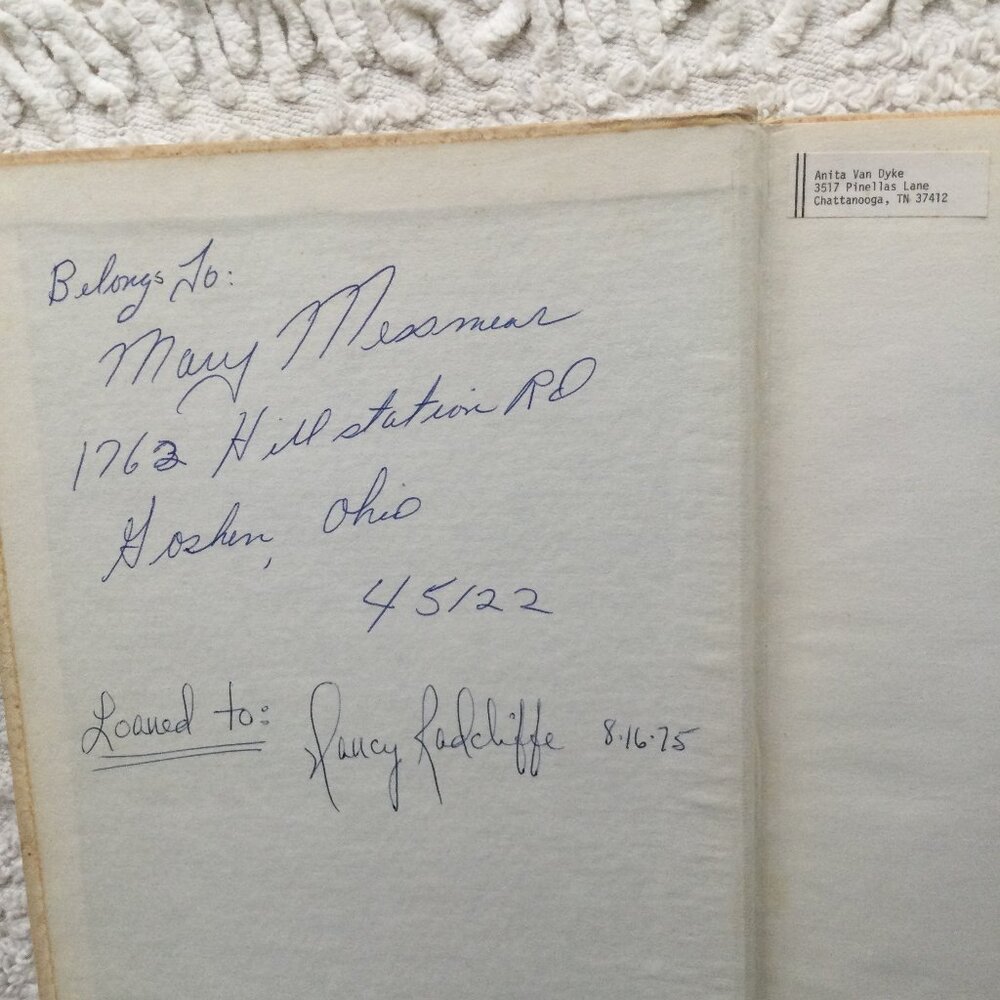 Belongs To:
Mary Messmear
1763 Hill station RD
Goshen, Ohio
45122
Loaned to: Nancy Radcliffe 8.16.75
Anita Van Dyke
3517 Pinellas Lane
Chattanooga, TN 37412